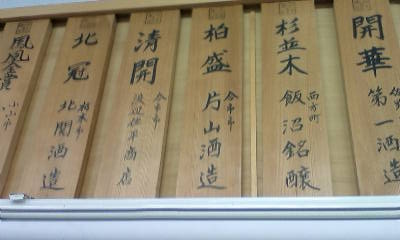 開華
佐野
第一酒造
杉並木
西方町
飯沼銘醸
柏盛
今市市
片山酒造
清開
今市市
渡辺佐平商店
北冠
栃木市
北関酒造
鳳凰金賞
小山市